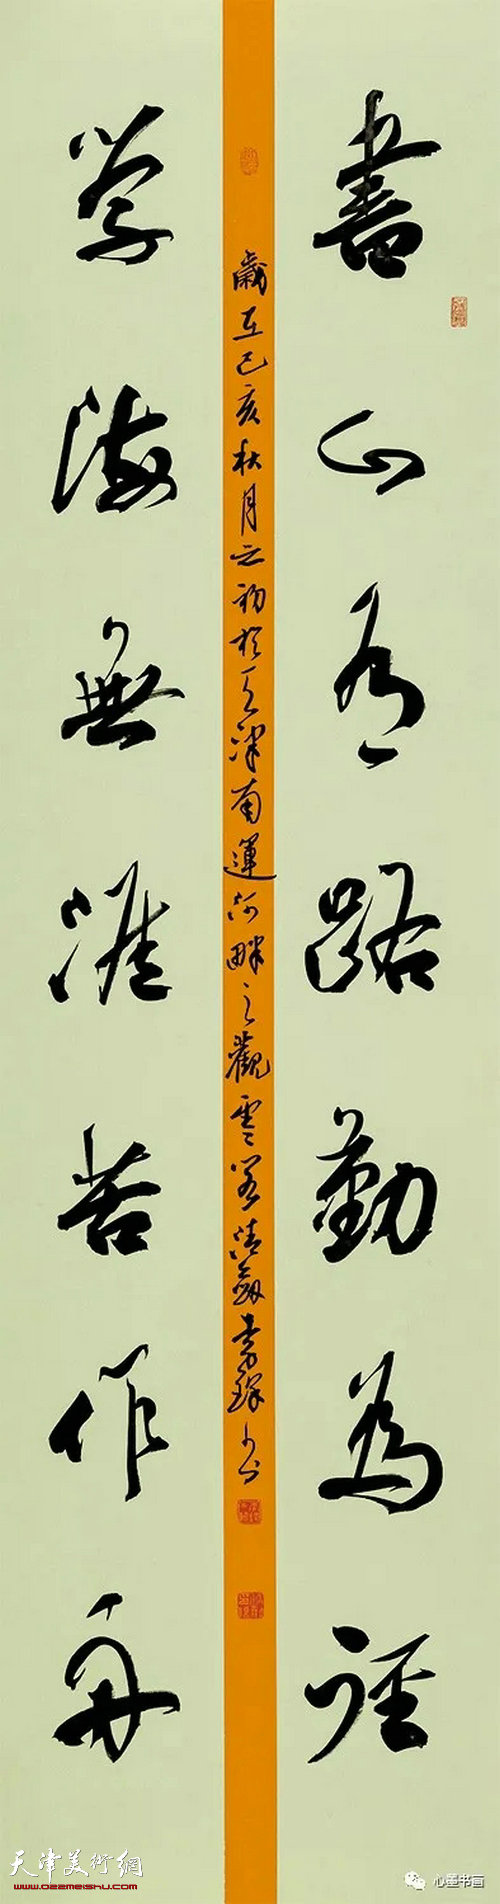 書山有路勤為径
学海無涯苦作舟
歲在己亥秋月之初於天津南運河畔之觀雲
天津美術網
www.022meishu.com
心墨书画